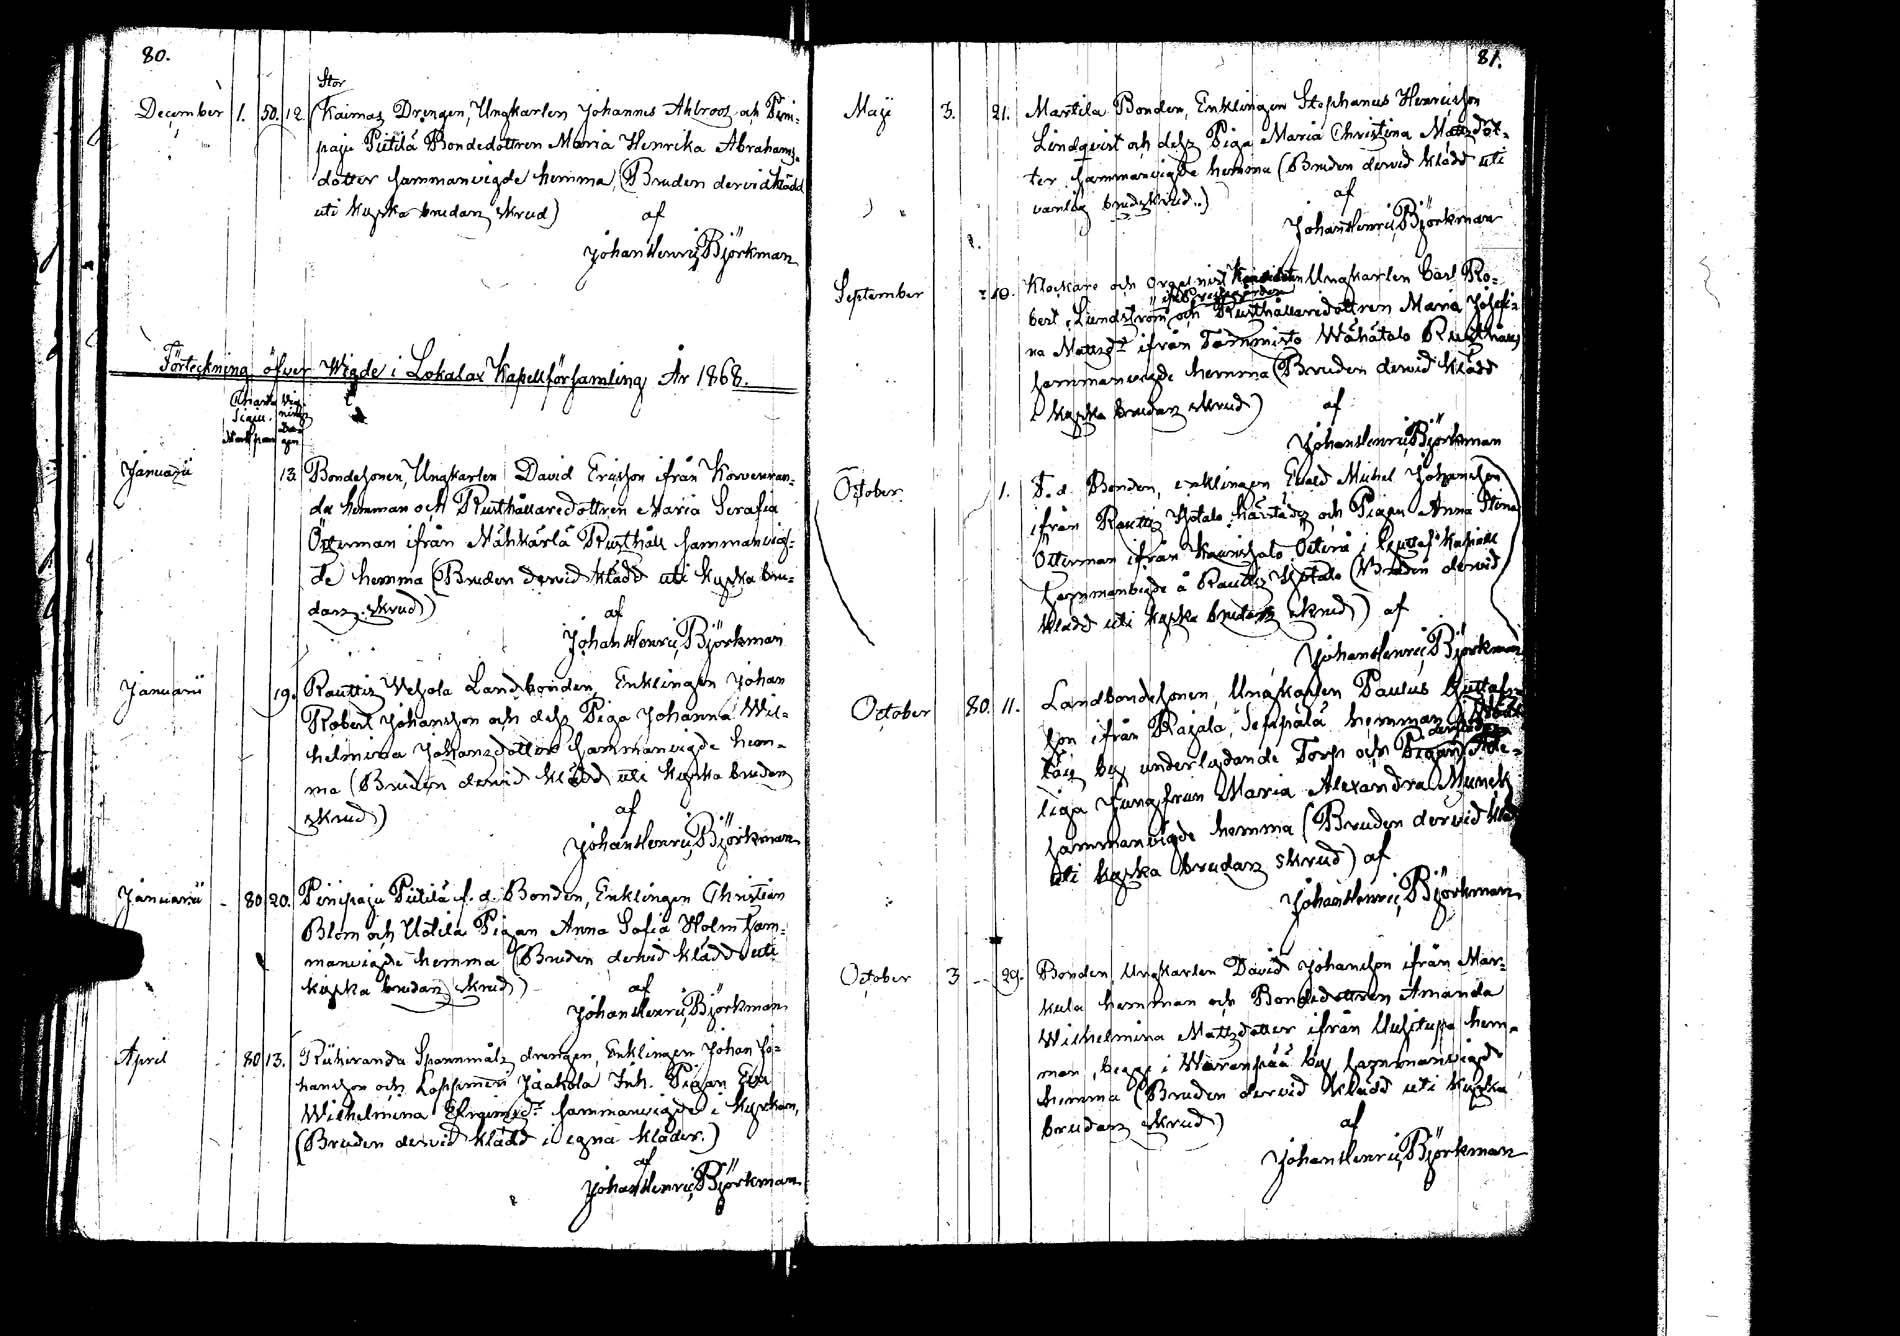 80.
Stor
December 1. 50. 12. Kaimas Drengen, Ungkarlen Johannes Ahlroos och Pini-
paju Piitilä Bondedottren Maria Henrika Abrahams-
dotter sammanvigde hemma, (Bruden dervid klädd
uti kyrka brudans skrud) af
Johan Henric Björkman
Förteckning öfver Wigde i Lokalax Kapellförsamling År 1868.
Charta Vig-
Sigill. nings
Mark pen Da-
gen
Januarii 13. Bondesonen, Ungkarlen David Ericsson ifrån Korvenran-
da hemman och Rusthållaredottren Maria Serafia
Österman ifrån Mähkärlä Rusthåll sammanvig-
de hemma (Bruden dervid klädd uti kyrka bru-
dans skrud)
af
Johan Henric Björkman
Januarii 19. Rauttis Wehola Landbonden, Enklingen Johan
Robert Johansson och dess Piga Johanna Wil-
helmina Johansdotter sammanvigde hem-
ma (Bruden dervid klädd uti kyrka brudans
skrud)
af
Johan Henric Björkman
Januarii - 80 20. Pinipaju Piitilä f. d. Bonden, Enklingen Christian
Blom och Utila Pigan Anna Sofia Holm sam-
manvigde hemma (Bruden dervid klädd uti
kyrka brudans skrud)
af
Johan Henric Björkman
April - 80 13. Riihiranda Spannmåls drengen, Enklingen Johan Jo-
hansson och Loppmeri Jaakola Inh. Pigan Eva
Wilhelmina sammanvigde i kyrkan,
(Bruden dervid klädd i egna kläder.)
af
Johan Henric Björkman
81.
Maji 3. 21. Martila Bonden, Enklingen Stephanus Henricsson
Lindqvist och dess Piga Maria Christina Mattsdot-
ter sammanvigde hemma (Bruden dervid klädd uti
vanlig brudskrud..)
af
Johan Henric Björkman
September - 10. Klockare och Orgelnist Ungkarlen Carl Ro-
bert Lundström och Rusthållaredottren Maria Josefi-
na Mattsdr ifrån Tammisto Wähätalo Rusthåll
sammanvigde hemma (Bruden dervid klädd
i kyrka brudans skrud) af
Johan Henric Björkman
October 1. F. d. Bonden, enklingen Evald Michel Johansson
ifrån Rauttis Ylötalo härstädes och Pigan Anna Stina
Österman ifrån i Kapell
sammanvigde å Rauttis Ylötalo (Bruden dervid
klädd uti kyrka brudans skrud) af
Johan Henric Björkman
October 80. 11. Landbondesonen, Ungkarlen Paulus Gustafs-
son ifrån Rajala Seppälä hemman
by underlydande Torp och Pigan Ade-
liga Jungfrun Maria Alexandra Munck
sammanvigde hemma (Bruden dervid klädd
uti kyrka brudans skrud) af
Johan Henric Björkman
October 3 - 29. Bonden, Ungkarlen David Johansson ifrån Mar-
kula hemman och Bondedottren Amanda
Wilhelmina Mattsdotter ifrån Uusitupa hem-
man, begge i Waranpää by sammanvigde
hemma (Bruden dervid klädd uti kyrka
brudans skrud)
af
Johan Henric Björkman